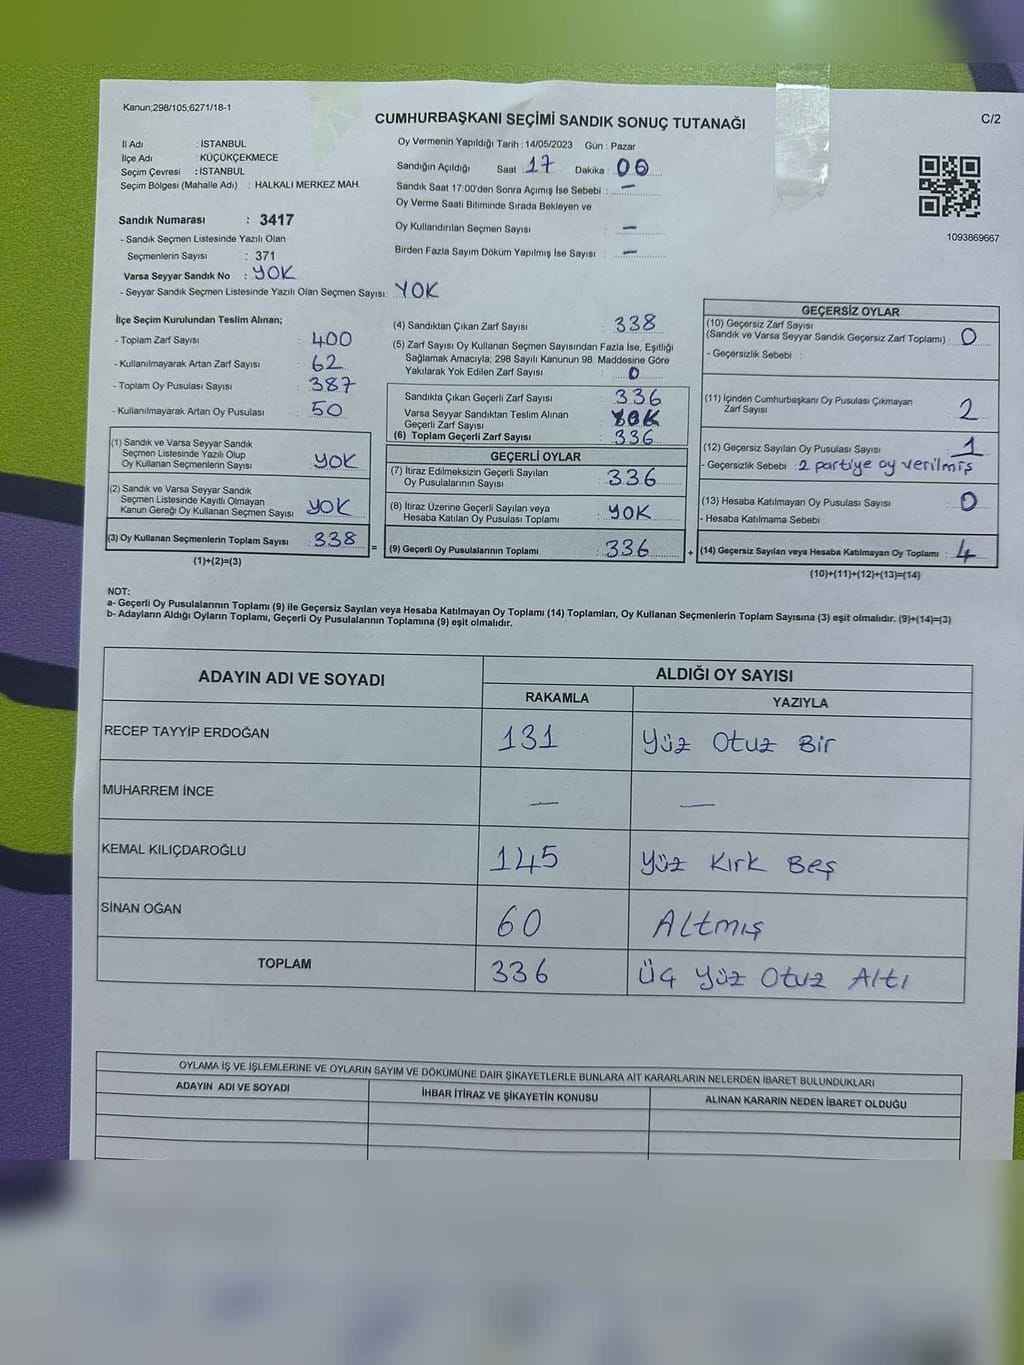 Kanun;298/105;6271/18-1
CUMHURBAŞKANI SEÇİMİ SANDIK SONUÇ TUTANAĞI
C/2
İl Adı : İSTANBUL
İlçe Adı : KÜÇÜKÇEKMECE
Seçim Çevresi : İSTANBUL
Seçim Bölgesi (Mahalle Adı) : HALKALI MERKEZ MAH.
Oy Vermenin Yapıldığı Tarih : 14/05/2023 Gün : Pazar
Sandığın Açıldığı Saat : 17 Dakika : 06
Sandık Saat 17:00'den Sonra Açımış İse Sebebi : —
Oy Verme Saati Bitiminde Sırada Bekleyen ve
Oy Kullandırılan Seçmen Sayısı : —
Birden Fazla Sayım Döküm Yapılmış İse Sayısı : —
1093869667
Sandık Numarası : 3417
- Sandık Seçmen Listesinde Yazılı Olan
Seçmenlerin Sayısı : 371
Varsa Seyyar Sandık No : YOK
- Seyyar Sandık Seçmen Listesinde Yazılı Olan Seçmen Sayısı: YOK
İlçe Seçim Kurulundan Teslim Alınan;
- Toplam Zarf Sayısı : 400
- Kullanılmayarak Artan Zarf Sayısı : 62
- Toplam Oy Pusulası Sayısı : 387
- Kullanılmayarak Artan Oy Pusulası : 50
(1) Sandık ve Varsa Seyyar Sandık
Seçmen Listesinde Yazılı Olup
Oy Kullanan Seçmenlerin Sayısı : YOK
(2) Sandık ve Varsa Seyyar Sandık
Seçmen Listesinde Kayıtlı Olmayan
Kanun Gereği Oy Kullanan Seçmen Sayısı : YOK
(3) Oy Kullanan Seçmenlerin Toplam Sayısı : 338
(1)+(2)=(3)
(4) Sandıktan Çıkan Zarf Sayısı : 338
(5) Zarf Sayısı Oy Kullanan Seçmen Sayısından Fazla İse, Eşitliği
Sağlamak Amacıyla; 298 Sayılı Kanunun 98. Maddesine Göre
Yakılarak Yok Edilen Zarf Sayısı : 0
Sandıkta Çıkan Geçerli Zarf Sayısı : 336
Varsa Seyyar Sandıktan Teslim Alınan
Geçerli Zarf Sayısı : YOK
(6) Toplam Geçerli Zarf Sayısı : 336
GEÇERLİ OYLAR
(7) İtiraz Edilmeksizin Geçerli Sayılan
Oy Pusulalarının Sayısı : 336
(8) İtiraz Üzerine Geçerli Sayılan veya
Hesaba Katılan Oy Pusulası Toplamı : YOK
= (9) Geçerli Oy Pusulalarının Toplamı : 336
GEÇERSİZ OYLAR
(10) Geçersiz Zarf Sayısı
(Sandık ve Varsa Seyyar Sandık Geçersiz Zarf Toplamı) : 0
- Geçersizlik Sebebi :
(11) İçinden Cumhurbaşkanı Oy Pusulası Çıkmayan
Zarf Sayısı 2
(12) Geçersiz Sayılan Oy Pusulası Sayısı : 1
- Geçersizlik Sebebi : 2 partiye oy verilmiş
(13) Hesaba Katılmayan Oy Pusulası Sayısı : 0
- Hesaba Katılmama Sebebi :
+ (14) Geçersiz Sayılan veya Hesaba Katılmayan Oy Toplamı : 4
(10)+(11)+(12)+(13)=(14)
NOT:
a- Geçerli Oy Pusulalarının Toplamı (9) ile Geçersiz Sayılan veya Hesaba Katılmayan Oy Toplamı (14) Toplamları, Oy Kullanan Seçmenlerin Toplam Sayısına (3) eşit olmalıdır. (9)+(14)=(3)
b- Adayların Aldığı Oyların Toplamı, Geçerli Oy Pusulalarının Toplamına (9) eşit olmalıdır.
ADAYIN ADI VE SOYADI ALDIĞI OY SAYISI
RAKAMLA YAZIYLA
RECEP TAYYİP ERDOĞAN 131 Yüz Otuz Bir
MUHARREM İNCE — —
KEMAL KILIÇDAROĞLU 145 Yüz Kırk Beş
SİNAN OĞAN 60 Altmış
TOPLAM 336 Üç Yüz Otuz Altı
OYLAMA İŞ VE İŞLEMLERİNE VE OYLARIN SAYIM VE DÖKÜMÜNE DAİR ŞİKAYETLERLE BUNLARA AİT KARARLARIN NELERDEN İBARET BULUNDUKLARI
ADAYIN ADI VE SOYADI İHBAR İTİRAZ VE ŞİKAYETİN KONUSU ALINAN KARARIN NEDEN İBARET OLDUĞU